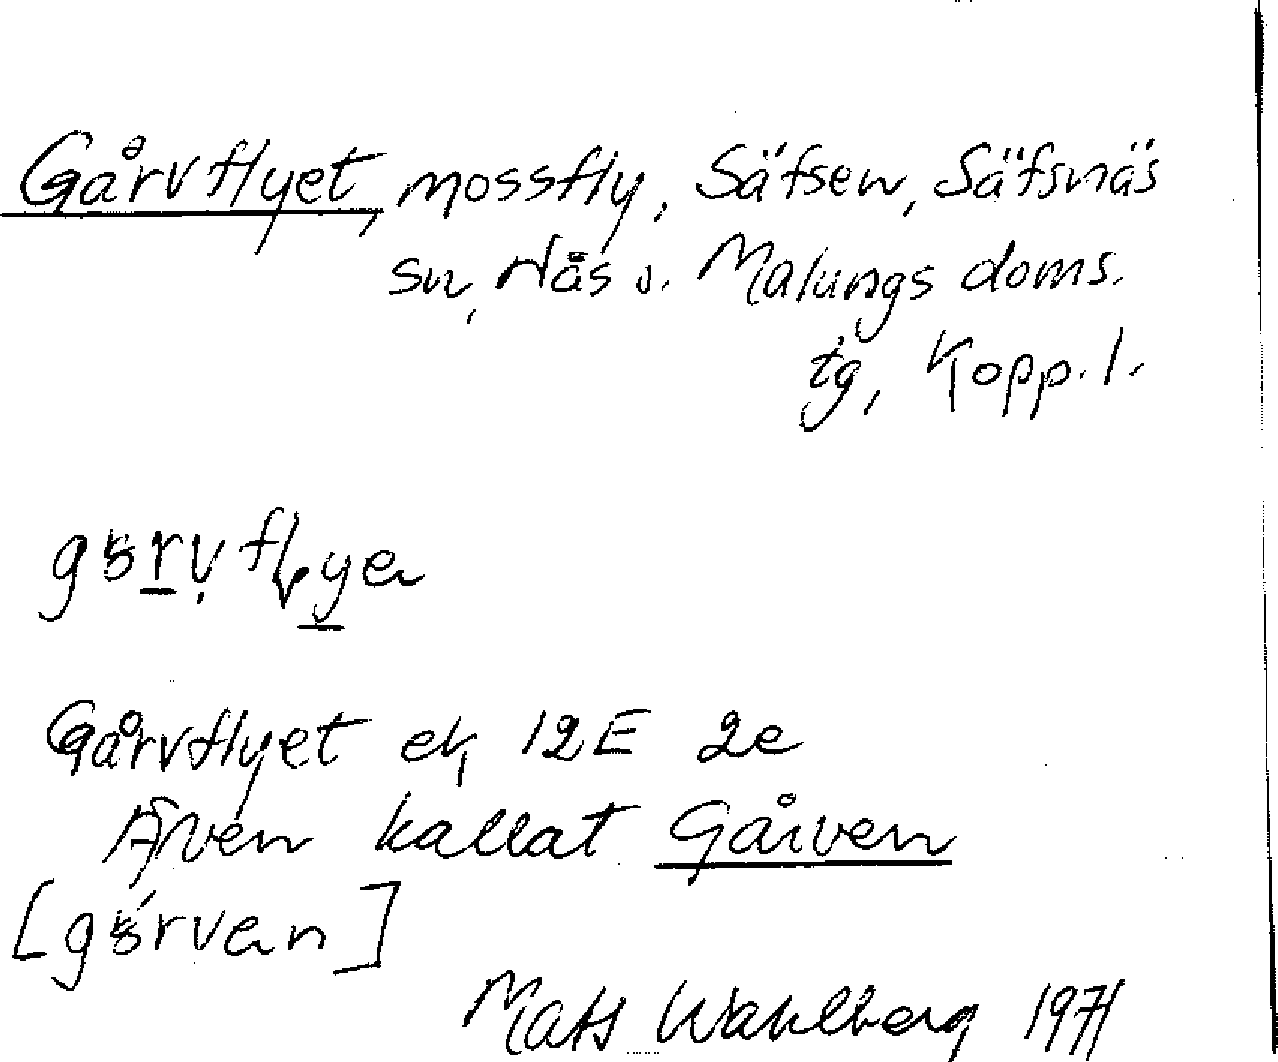 Gårvflyet, mossfly, Säfsen, Säfsnäs
sn, Nås o. Malungs doms.
tg, Kopp. l.
Gårvflyet ek 12E 2e
Även kallat Gårven
Mats Wahlberg 1971